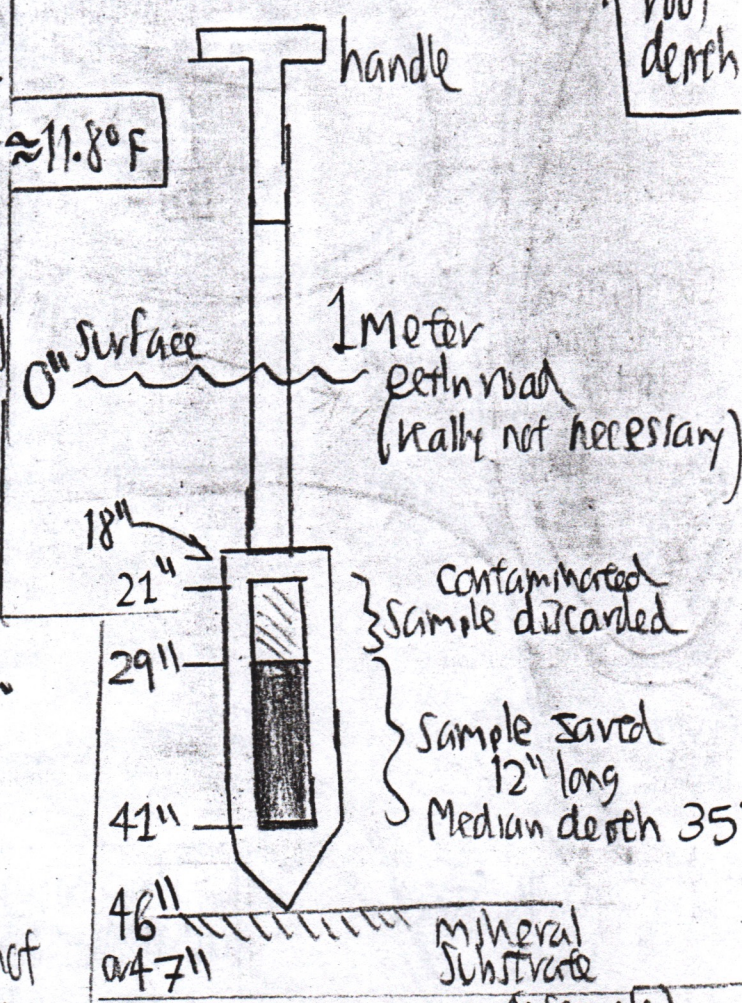 handle
≈11.8°F
0" Surface
1 Meter
(really not necessary)
18"
21"
Contaminated
Sample discarded
29"
Sample saved
12" long
Median depth 35"
41"
46"
or 47"
mineral
Substrate